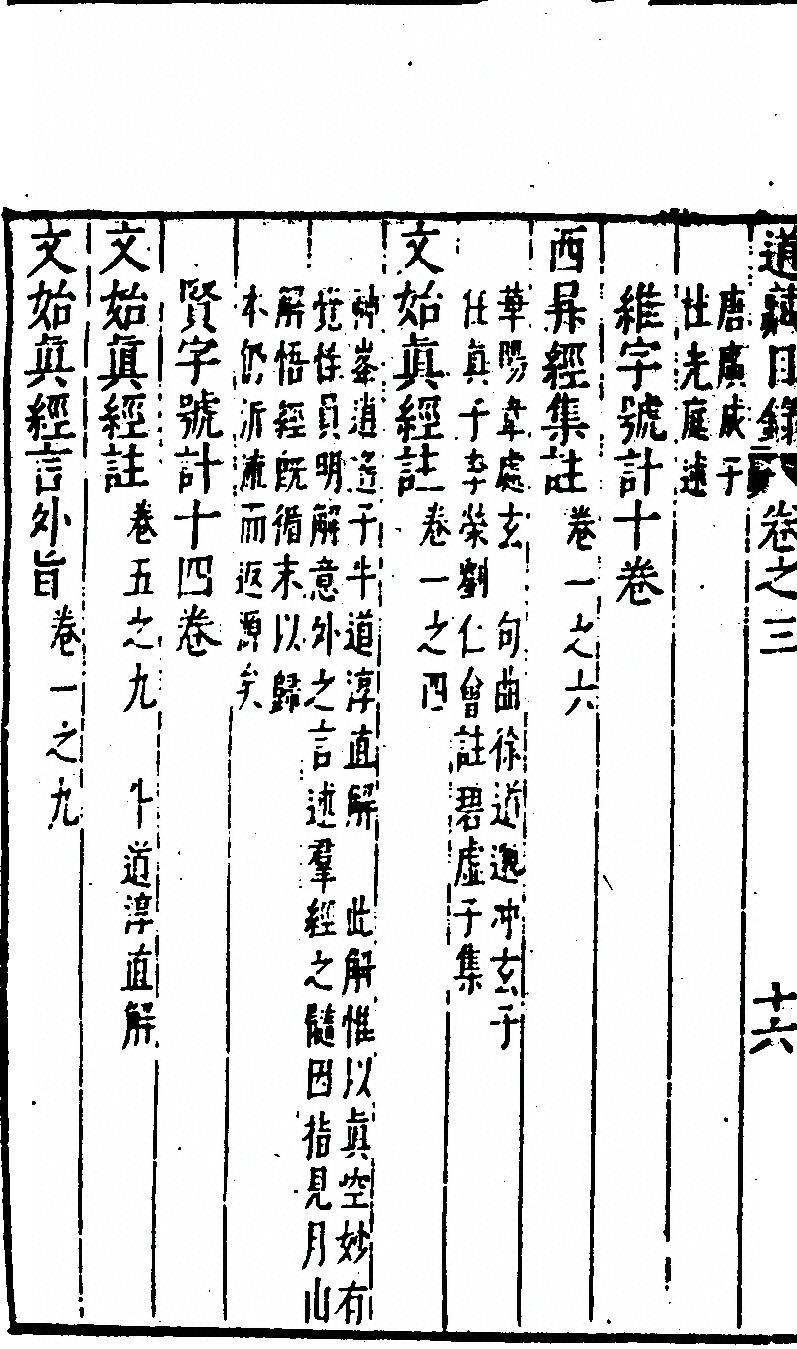 道藏目錄 卷之三 十六
唐廣成子
杜光庭述
維字號計十卷
西昇經集註 卷一之六
華陽韋處玄 句曲徐道邈冲玄子
任真子李榮劉仁會註碧虛子集
文始眞經註 卷一之四
神峯逍遙子牛道淳直解 此解惟以眞空妙有
覺性員明解意外之言述羣經之髓因指見月
解悟經旣循末以歸
本仍泝流而返源矣
賢字號計十四卷
文始眞經註 卷五之九 牛道淳直解
文始眞經言外旨 卷一之九